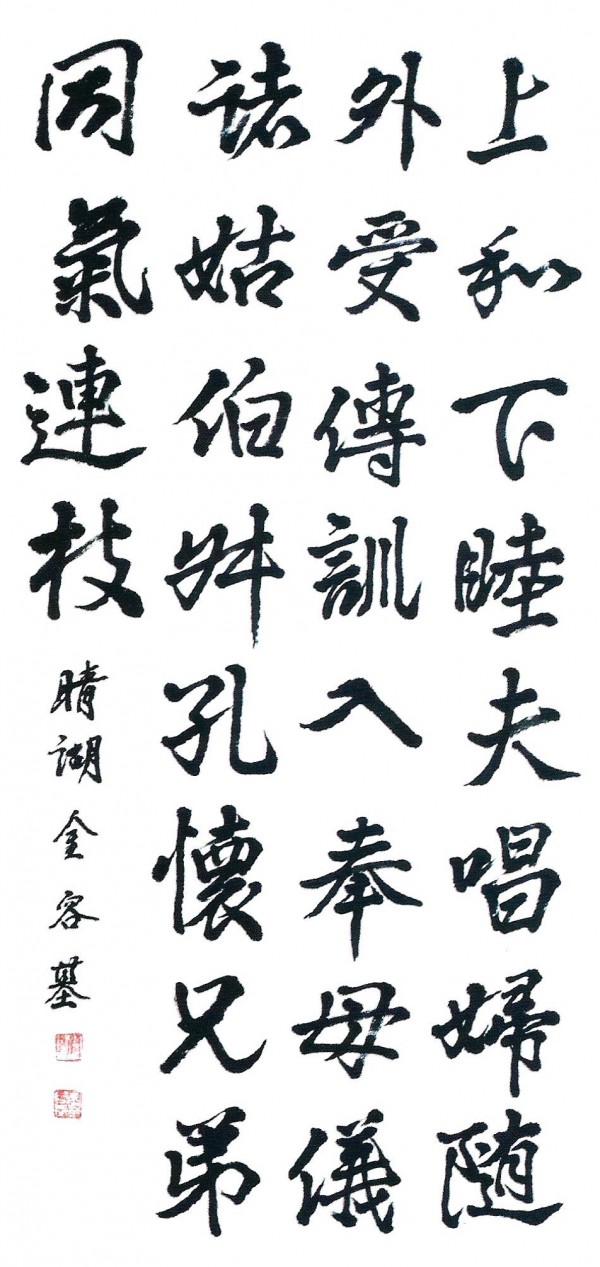 上和下睦夫唱婦随
外受傅訓入奉母儀
諸姑伯叔孔懷兄弟
同氣連枝
晴湖金容基